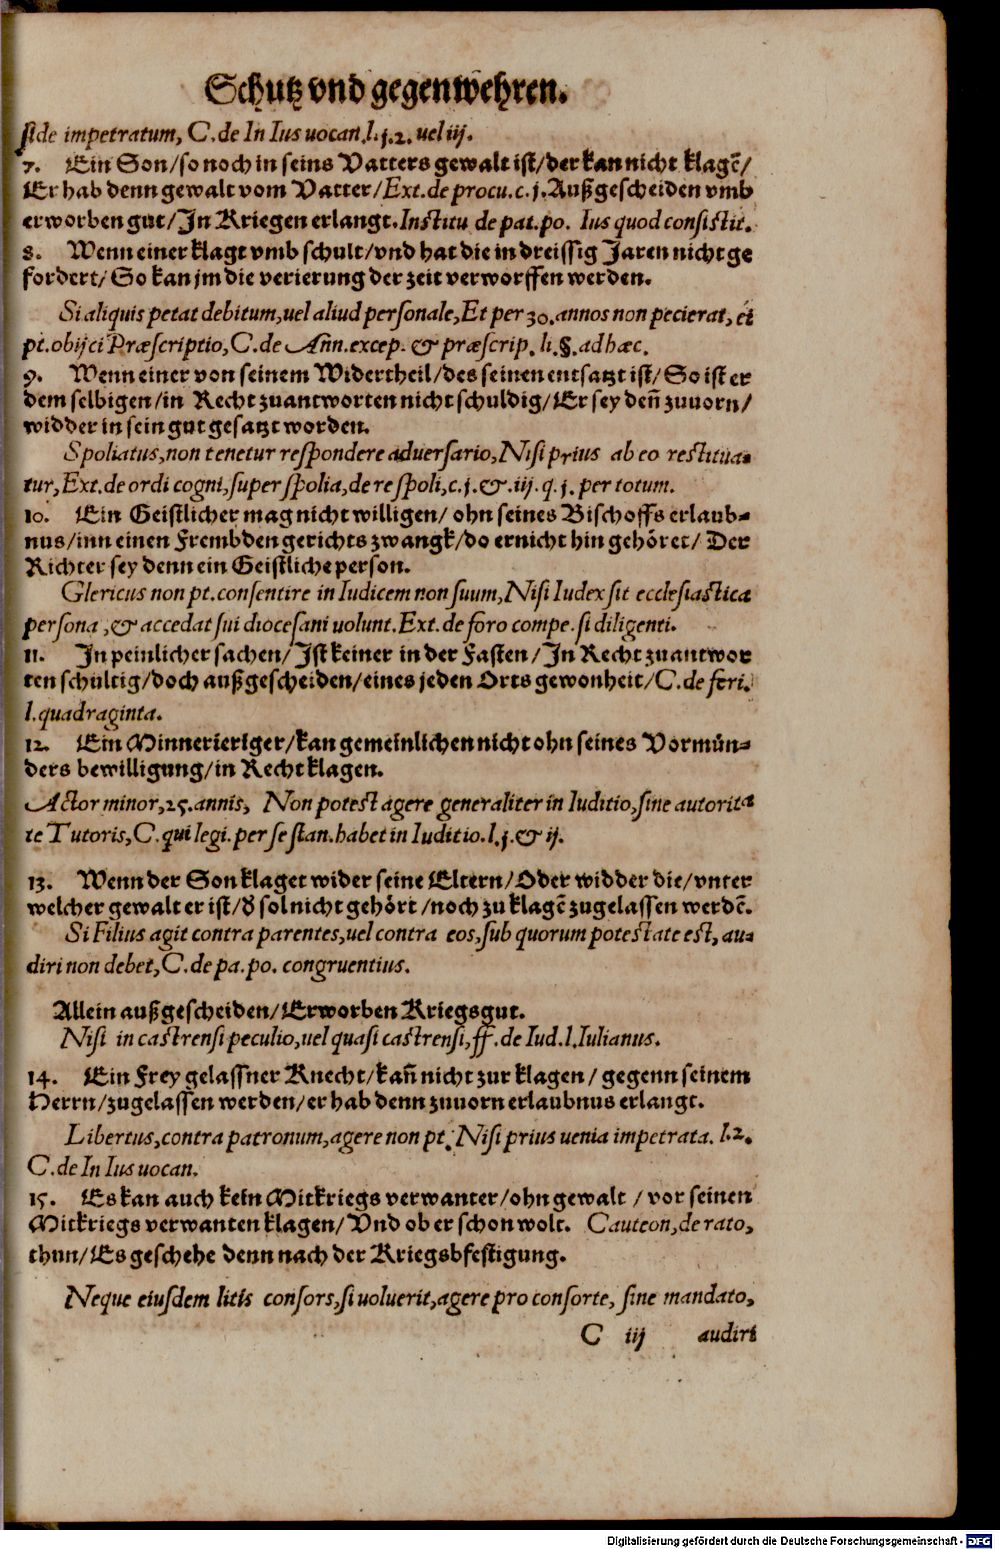 Schutz vnd gegenwehren.
side impetratum, C. de In Ius uocan. l. j. 2. uel iij.
7. Ein Son/so noch in seins Vatters gewalt ist/der kan nicht klagē/
Er hab denn gewalt vom Vatter/Ext. de procu. c. j. Außgescheiden vmb
erworben gut/Jn Kriegen erlangt. Institu de pat. po. Ius quod consistit.
8. Wenn einer klagt vmb schult/vnd hat die in dreissig Jaren nicht ge
fordert/So kan jm die verierung der zeit verworffen werden.
Si aliquis petat debitum, uel aliud personale, Et per 30. annos non pecierat, ei
pt. obijci Præscriptio, C. de Añn. excep. & præscrip. li. §. ad hæc.
9. Wenn einer von seinem Widertheil/des seinen entsatzt ist/So ist er
dem selbigen/in Recht zuantworten nicht schuldig/Er sey deñ zuuorn/
widder in sein gut gesatzt worden.
Spoliatus, non tenetur respondere aduersario, Nisi prius ab eo restitua-
tur, Ext. de ordi cogni, super spolia, de re spoli, c. j. &. iij. q. j. per totum.
10. Ein Geistlicher mag nicht willigen/ohn seines Bischoffs erlaub-
nus/inn einen Frembden gerichts zwangk/do er nicht hin gehöret/Der
Richter sey denn ein Geistliche person.
Glericus non pt. consentire in Iudicem non suum, Nisi Iudex sit ecclesiastica
persona, & accedat sui diocesani uolunt. Ext. de foro compe. si diligenti.
11. Jn peinlicher sachen/Jst keiner in der Fasten/Jn Recht zuantwor
ten schültig/doch außgescheiden/eines jeden Orts gewonheit/C. de feri.
l. quadraginta.
12. Ein Minnerieriger/kan gemeinlichen nicht ohn seines Vormün-
ders bewilligung/in Recht klagen.
Actor minor, 25. annis, Non potest agere generaliter in Iuditio, sine autorita
te Tutoris, C. qui legi. per se stan. habet in Iuditio. l. j. & ij.
13. Wenn der Son klaget wider seine Eltern/Oder widder die/vnter
welcher gewalt er ist/d̄ sol nicht gehört/noch zu klagē zugelassen werdē.
Si Filius agit contra parentes, uel contra eos, sub quorum potestate est, au-
diri non debet, C. de pa. po. congruentius.
Allein außgescheiden/Erworben Kriegsgut.
Nisi in castrensi peculio, uel quasi castrensi, ff. de Iud. l. Iulianus.
14. Ein Frey gelassner Knecht/kañ nicht zur klagen/gegenn seinem
Herrn/zugelassen werden/er hab denn zuuorn erlaubnus erlangt.
Libertus, contra patronum, agere non pt. Nisi prius uenia impetrata. l. 2.
C. de In Ius uocan.
15. Es kan auch kein Mitkriegs verwanter/ohn gewalt/vor seinen
Mitkriegs verwanten klagen/Vnd ob er schon wolt. Cauteon, de rato,
thun/Es geschehe denn nach der Kriegsbfestigung.
Neque eiusdem litis consors, si uoluerit, agere pro consorte, sine mandato,
C iij audiri
Digitalisierung gefördert durch die Deutsche Forschungsgemeinschaft - DFG